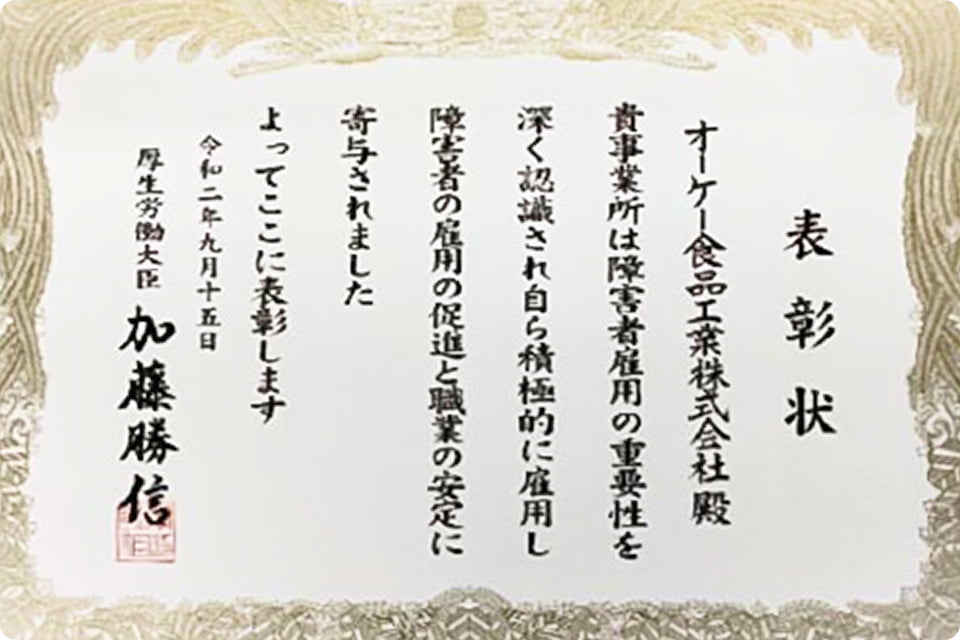 表彰状
オーケー食品工業株式会社 殿
貴事業所は障害者雇用の重要性を
深く認識され自ら積極的に雇用し
障害者の雇用の促進と職業の安定に
寄与されました
よってここに表彰します
令和二年九月十五日
厚生労働大臣 加藤勝信